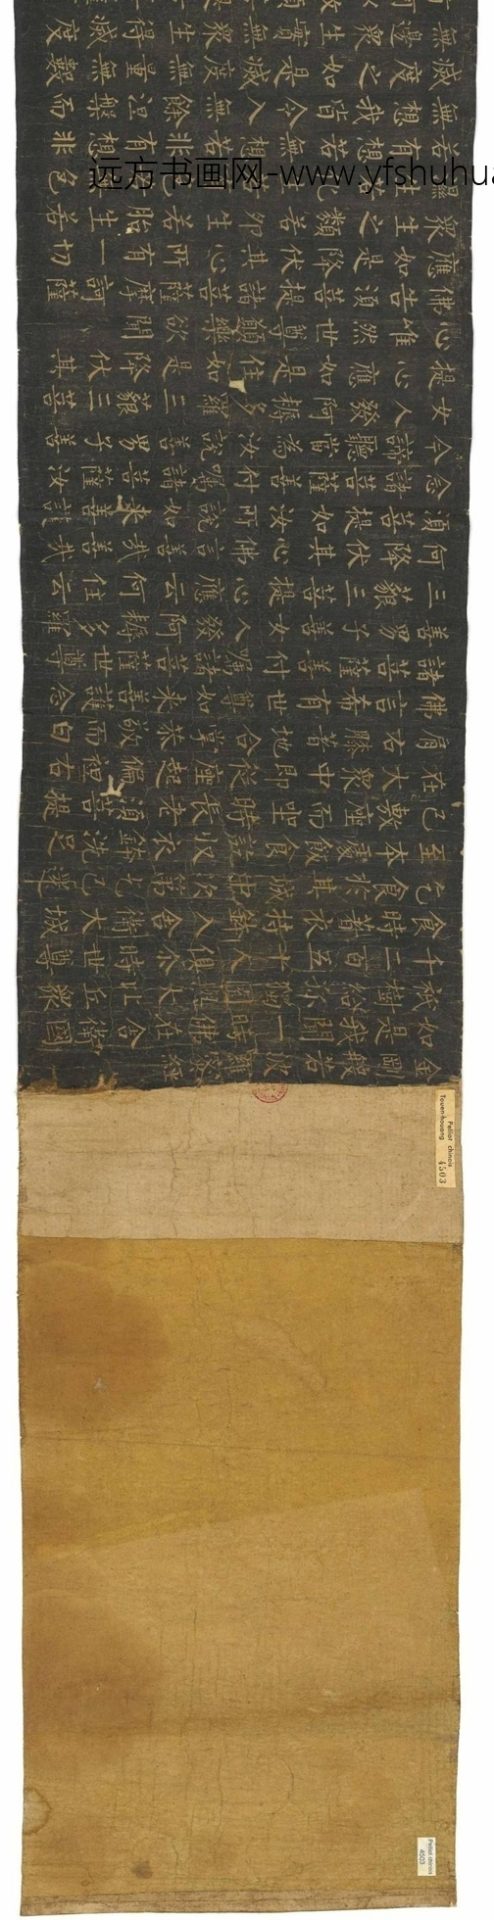 金剛般若波羅蜜經
如是我聞一時佛在舍衛國
祇樹給孤獨園與大比丘眾
千二百五十人俱尒時世尊
食時著衣持鉢入舍衛大城
乞食於其城中次第乞已還
至本處飯食訖收衣鉢洗足
已敷座而坐時長老須菩提
在大眾中即從座起偏袒右
肩右膝著地合掌恭敬而白
佛言希有世尊如來善護念
諸菩薩善付囑諸菩薩世尊
善男子善女人發阿耨多羅
三藐三菩提心應云何住云
何降伏其心佛言善哉善哉
須菩提如汝所說如來善護
念諸菩薩善付囑諸菩薩汝
今諦聽當為汝說善男子善
女人發阿耨多羅三藐三菩
提心應如是住如是降伏其
心唯然世尊願樂欲聞
佛告須菩提諸菩薩摩訶薩
應如是降伏其心所有一切
眾生之類若卵生若胎生若
濕生若化生若有色
若有想若無想若非有想非
無想我皆令入無餘涅槃而
滅度之如是滅度無量無數
無邊眾生實無眾生得滅度
远方书画网-www.yfshuhua
Pelliot chinois
Touen-houang
4503
Pelliot chinois
4503